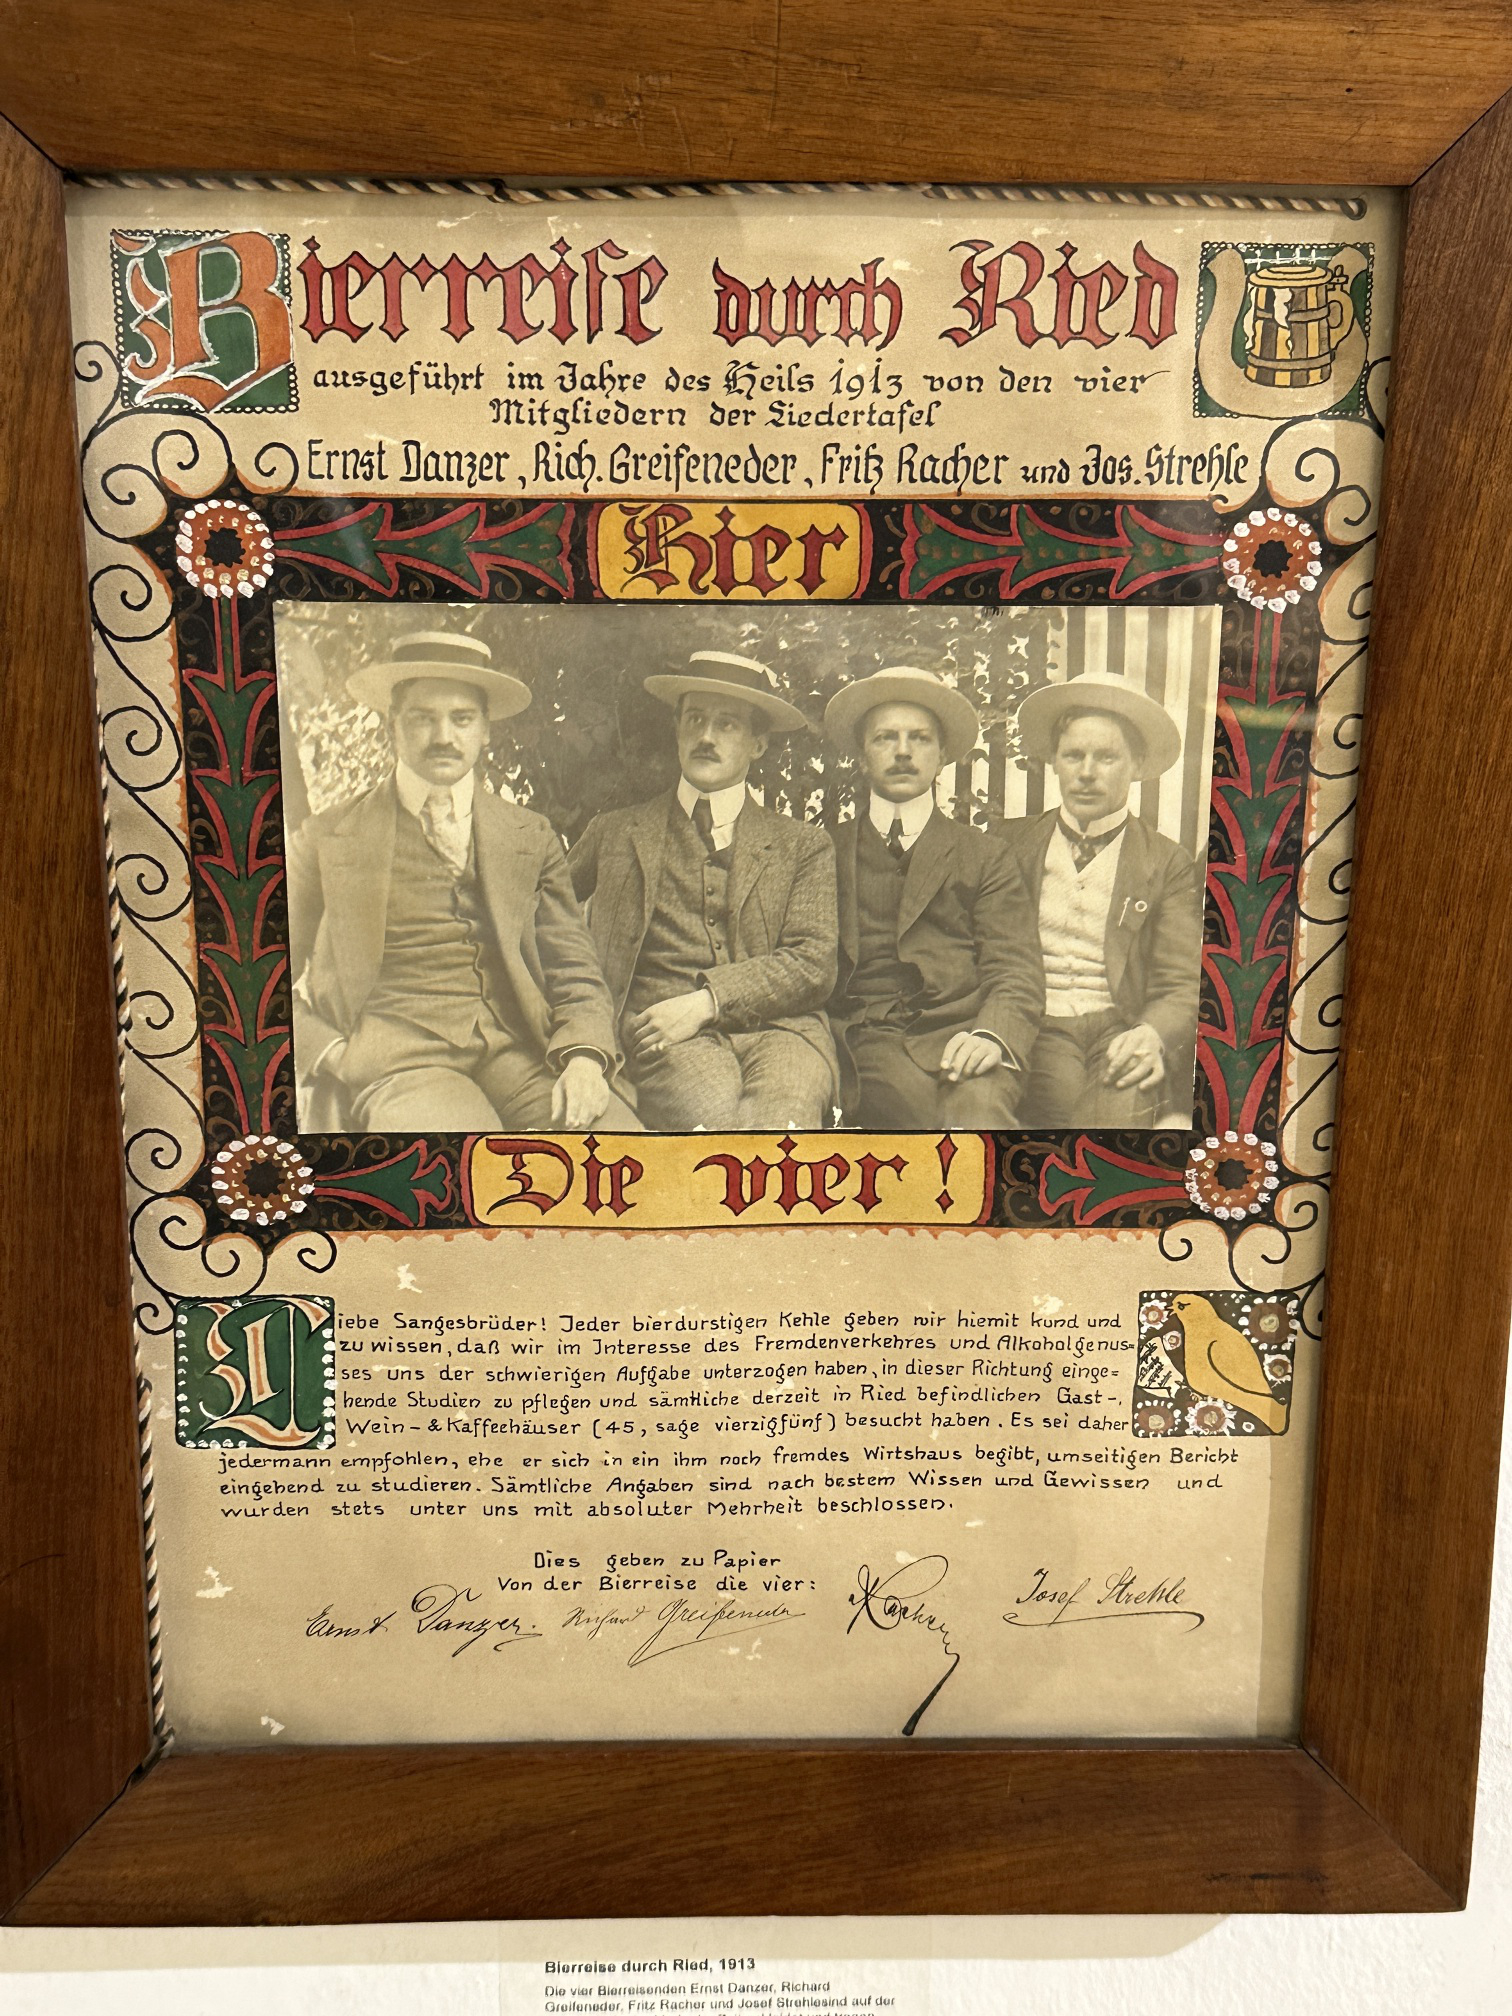 Bierreise durch Ried
ausgeführt im Jahre des Heils 1913 von den vier
Mitgliedern der Liedertafel
Ernst Danzer, Rich. Greifeneder, Fritz Racher und Jos. Strehle
Hier
Die vier!
Liebe Sangesbrüder! Jeder bierdurstigen Kehle geben wir hiemit kund und
zu wissen, daß wir im Interesse des Fremdenverkehres und Alkoholgenus=
ses uns der schwierigen Aufgabe unterzogen haben, in dieser Richtung einge=
hende Studien zu pflegen und sämtliche derzeit in Ried befindlichen Gast-,
Wein- & Kaffeehäuser (45, sage vierzigfünf) besucht haben. Es sei daher
jedermann empfohlen, ehe er sich in ein ihm noch fremdes Wirtshaus begibt, umseitigen Bericht
eingehend zu studieren. Sämtliche Angaben sind nach bestem Wissen und Gewissen und
wurden stets unter uns mit absoluter Mehrheit beschlossen.
Dies geben zu Papier
Von der Bierreise die vier:
Ernst Danzer. Richard Greifeneder Racher Josef Strehle
Bierreise durch Ried, 1913
Die vier Bierreisenden Ernst Danzer, Richard
Greifeneder, Fritz Racher und Josef Strehlesind auf der